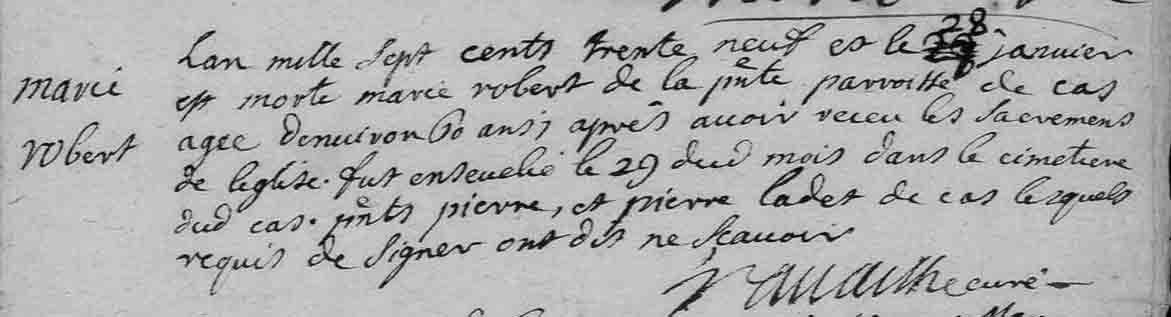 Lan mille sept cents trente neuf et le 28 janvier
marie est morte marie robert de la pñte parroisse de cas
robert agee denuiron 60 ans; apres auoir receu les sacremens
de leglise. fut enseuelie le 29 dud mois dans le cimetiere
dud cas. pñts pierre, et pierre ladet de cas lesquels
requis de signer ont dit ne scauoir
curé